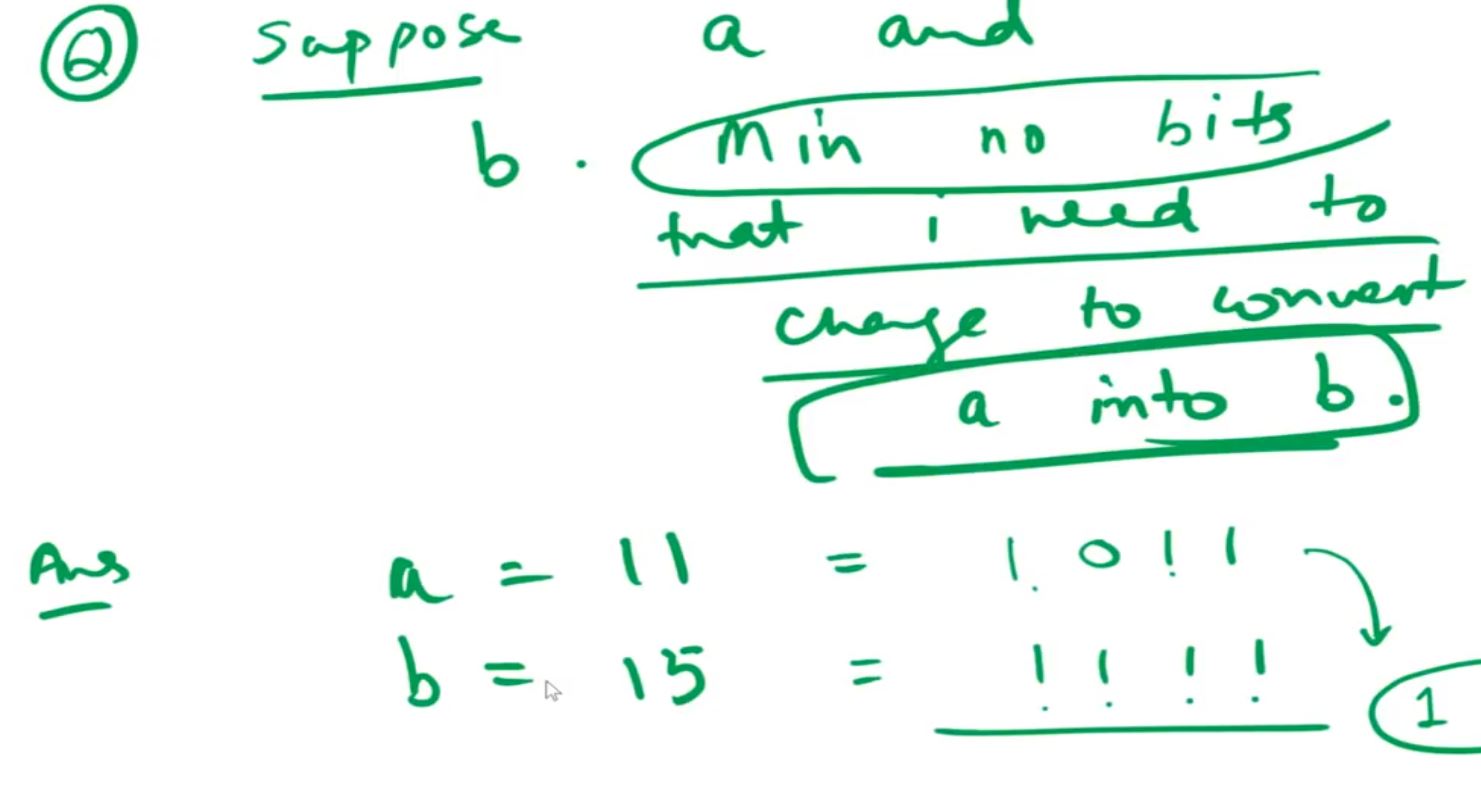 Q Suppose a and
b. Min no bits
that i need to
change to convert
a into b.
Ans a = 11 = 1011
b = 15 = 1111
1